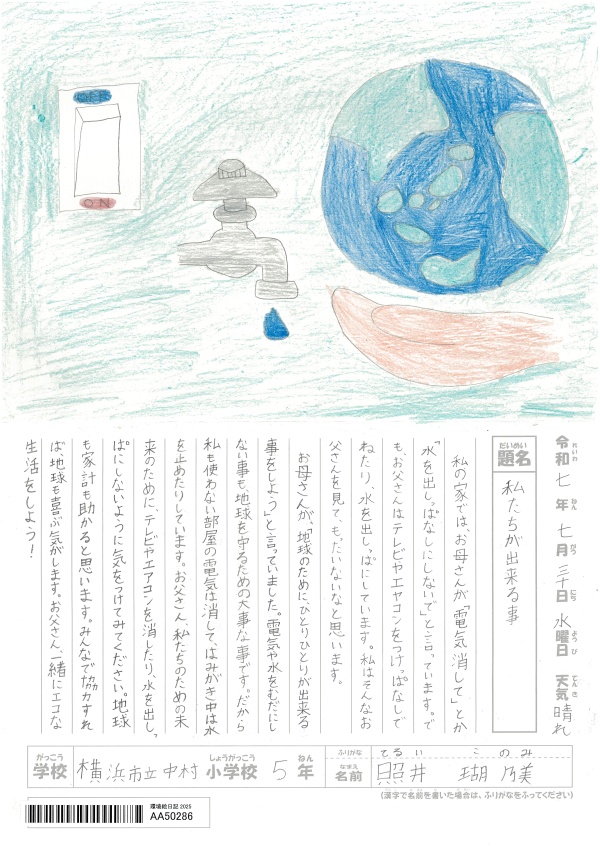 OFF
ON
令和七年七月三十日水曜日 天気晴れ
れいわ ねん がつ にち ようび てんき
だいめい
題名
私たちが出来る事
私の家では、お母さんが「電気消して」とか
「水を出しっぱなしにしないで」と言っています。で
も、お父さんはテレビやエヤコンをつけっぱなしで
ねたり、水を出しっぱにしています。私はそんなお
父さんを見て、もったいないなと思います。
お母さんが、「地球のために、ひとりひとりが出来る
事をしよう」と言っていました。電気や水をむだにし
ない事も、地球を守るための大事な事です。だから
私も使わない部屋の電気は消して、はみがき中は水
を止めたりしています。お父さん、私たちのための未
来のために、テレビやエアコンを消したり、水を出しっ
ぱにしないように気をつけてみてください。地球
も家計も助かると思います。みんなで協力すれ
ば、地球も喜ぶ気がします。お父さん、一緒にエコな
生活をしよう！
がっこう しょうがっこう ねん
学校 横浜市立中村 小学校 5年
ふりがな てるい このみ
なまえ
名前 照井 瑚乃美
(漢字で名前を書いた場合は、ふりがなをふってください)
環境絵日記 2025
AA50286